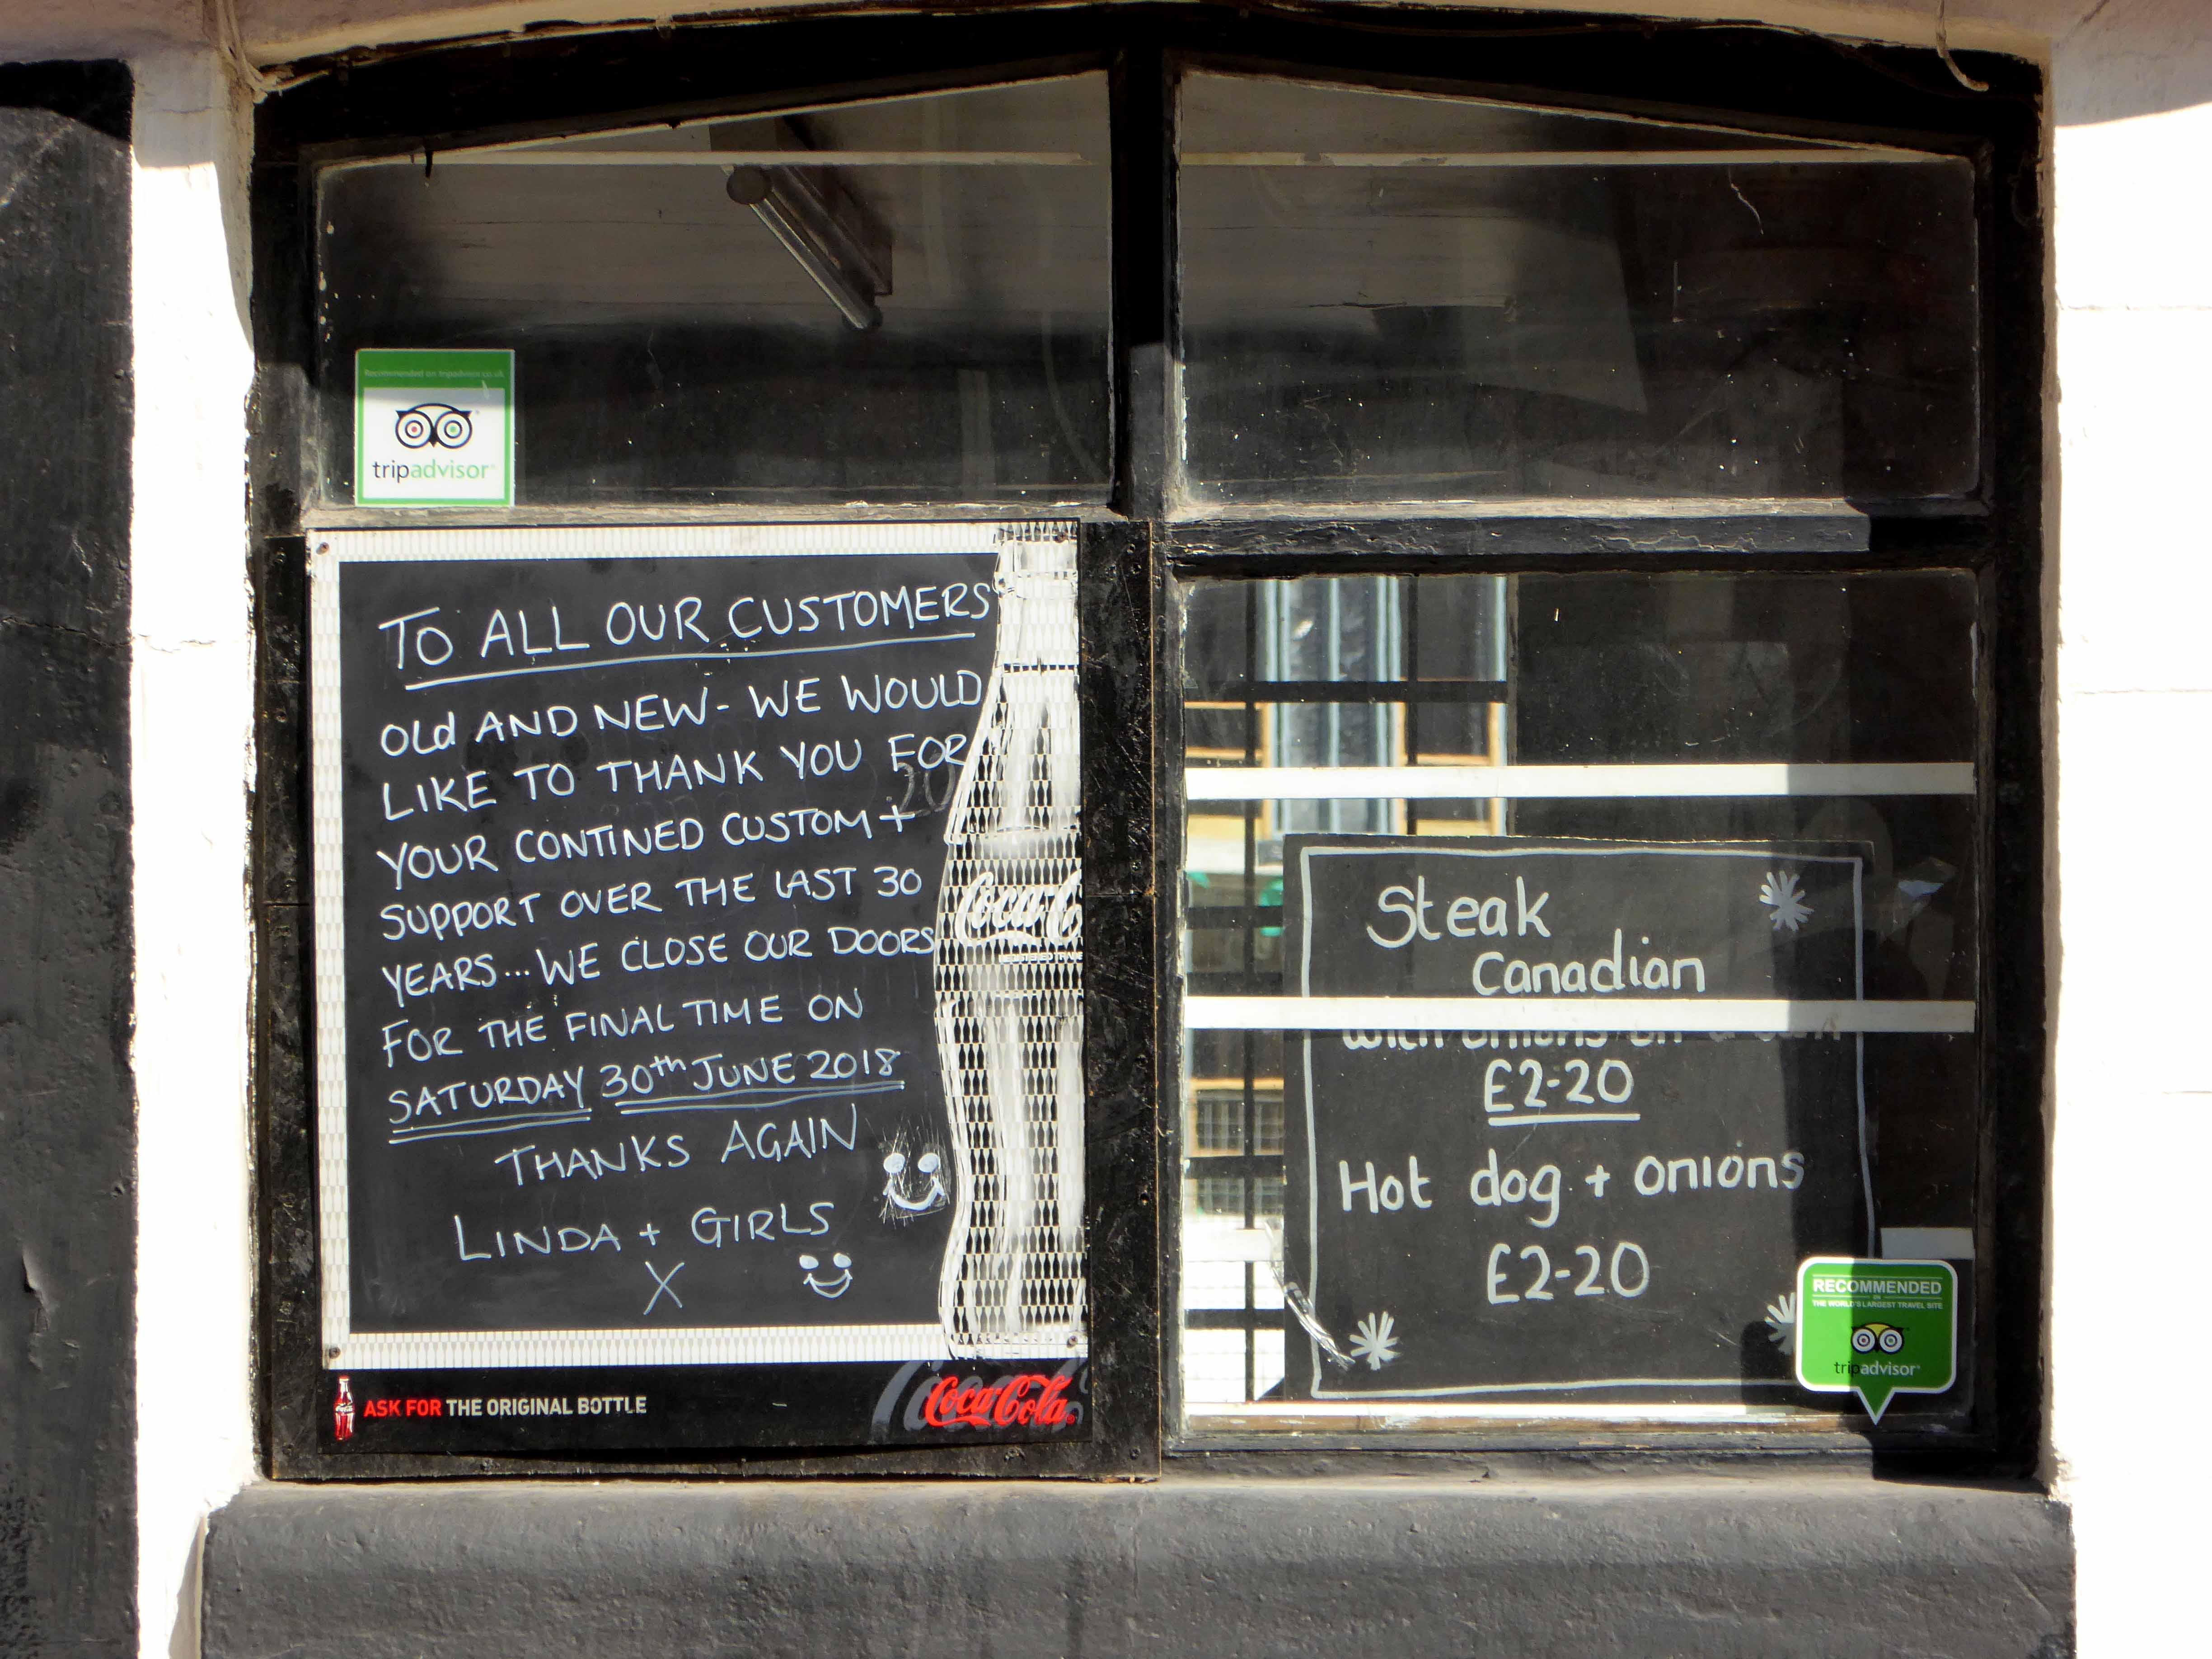 Recommended on tripadvisor.co.uk
tripadvisor
TO ALL OUR CUSTOMERS
OLd AND NEW - WE WOULD
LIKE TO THANK YOU FOR
YOUR CONTINED CUSTOM +
SUPPORT OVER THE LAST 30
YEARS... WE CLOSE OUR DOORS
FOR THE FINAL TIME ON
SATURDAY 30th JUNE 2018
THANKS AGAIN
LINDA + GIRLS
X
Coca-Co
ASK FOR THE ORIGINAL BOTTLE
Coca-Cola
Steak
Canadian
with onions on a
£2-20
Hot dog + onions
£2-20
RECOMMENDED
ON
THE WORLD'S LARGEST TRAVEL SITE
tripadvisor